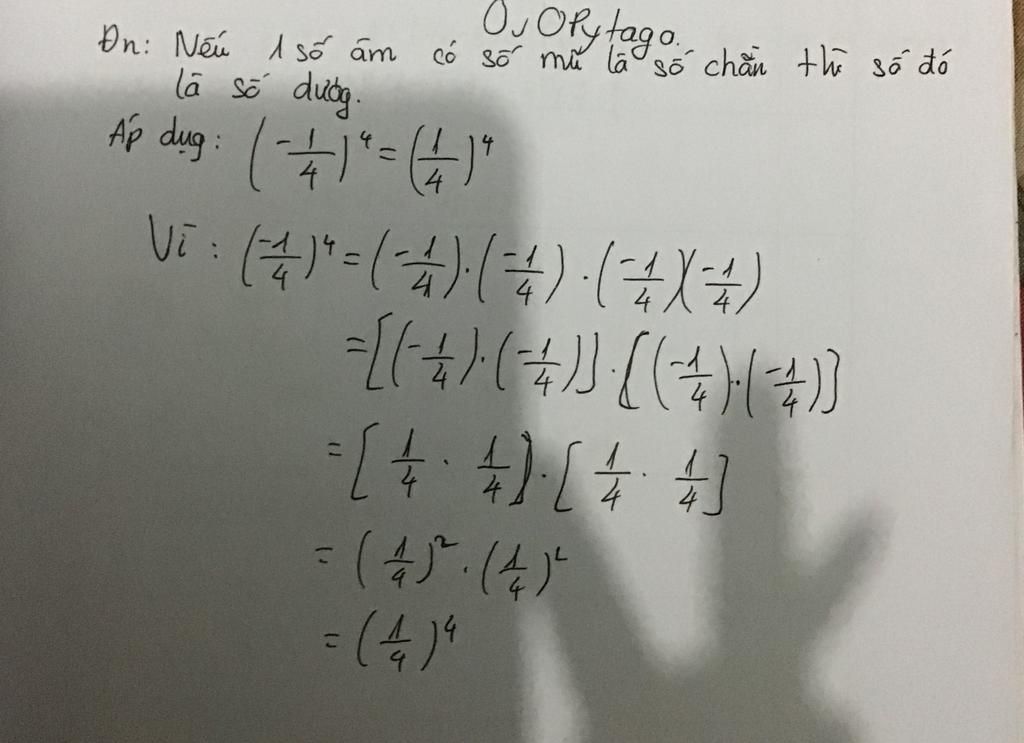 OvOPytago.
Đn: Nếu 1 số âm có số mũ là số chẵn thì số đó
là số dương.
Áp dụng: (-1/4)^4 = (1/4)^4
Vì: (-1/4)^4 = (-1/4).(-1/4).(-1/4)(-1/4)
= [(-1/4).(-1/4)].[(-1/4).(-1/4)]
= [1/4 . 1/4].[1/4 . 1/4]
= (1/4)^2.(1/4)^2
= (1/4)^4